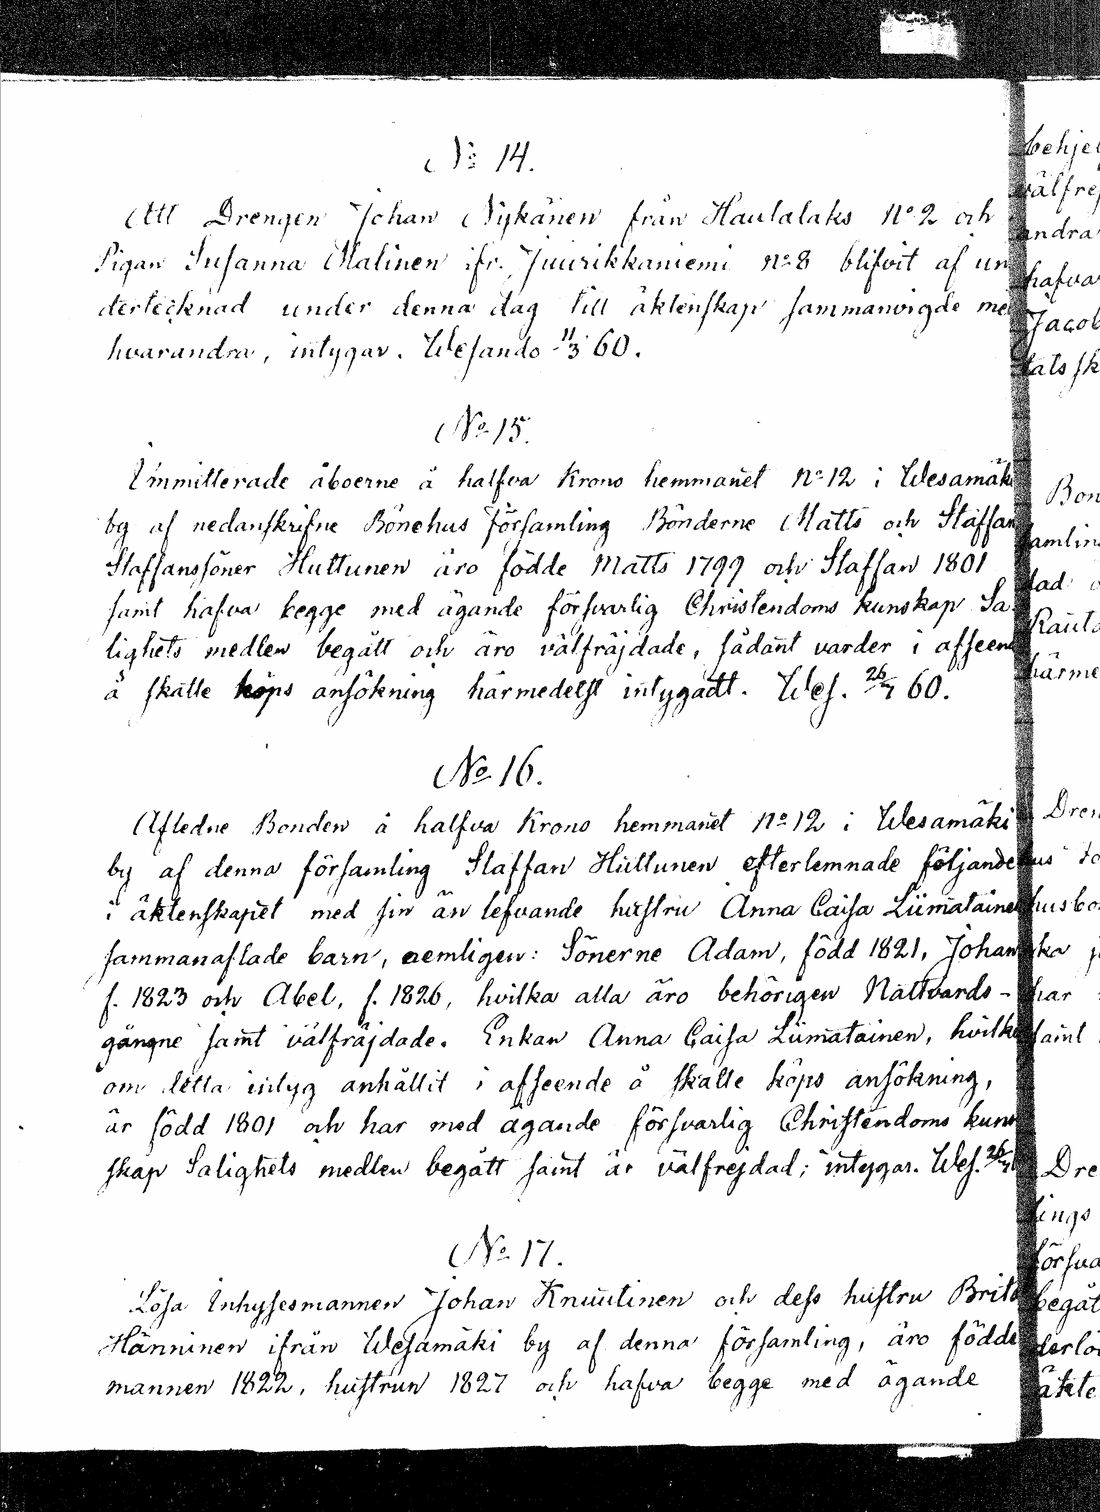 No 14.
Att Drengen Johan Nykänen från Hautalaks No 2 och
Pigan Susanna Malinen ifr. Juurikkaniemi No 8 blifvit af un
dertecknad under denna dag till äktenskap sammanvigde me
hvarandra, intygar. Wesando 11/3 60.
No 15.
Immitterade åboerne å halfva Krono hemmanet No 12 i Wesamäki
by af nedanskrifne Bönehus församling Bönderne Matts och Staffan
Staffanssöner Huttunen äro födde Matts 1799 och Staffan 1801
samt hafva begge med ägande försvarlig Christendoms kunskap Sa
lighets medlen begått och äro välfräjdade, sådant varder i afseen
å skatte köps ansökning härmedelst intygadt. Wes. 26/7 60.
No 16.
Afledne Bonden å halfva Krono hemmanet No 12 i Wesamäki
by af denna församling Staffan Huttunen efterlemnade följande
i äktenskapet med sin än lefvande hustru Anna Caisa Liimataine
sammanaflade barn, nemligen: Sönerne Adam, född 1821, Johan
f. 1823 och Abel, f. 1826, hvilka alla äro behörigen Nattvards-
gångne samt välfräjdade. Enkan Anna Caisa Liimatainen, hvilke
om detta intyg anhållit i afseende å skatte köps ansökning,
är född 1801 och har med ägande försvarlig Christendoms kun
skap Salighets medlen begått samt är välfrejdad; intygar. Wes. 26/7
No 17.
Lösa Inhysesmannen Johan Knuutinen och dess hustru Brita
Hänninen ifrån Wesamäki by af denna församling, äro födde
mannen 1822, hustrun 1827 och hafva begge med ägande
behje
välfrej
andra
hafva
Jacob
tats sk
Bon
samlin
dad
Rauta
härme
Dren
hus
husbo
ka
har
samt
Dre
lings
försva
begåt
derlö
äkte